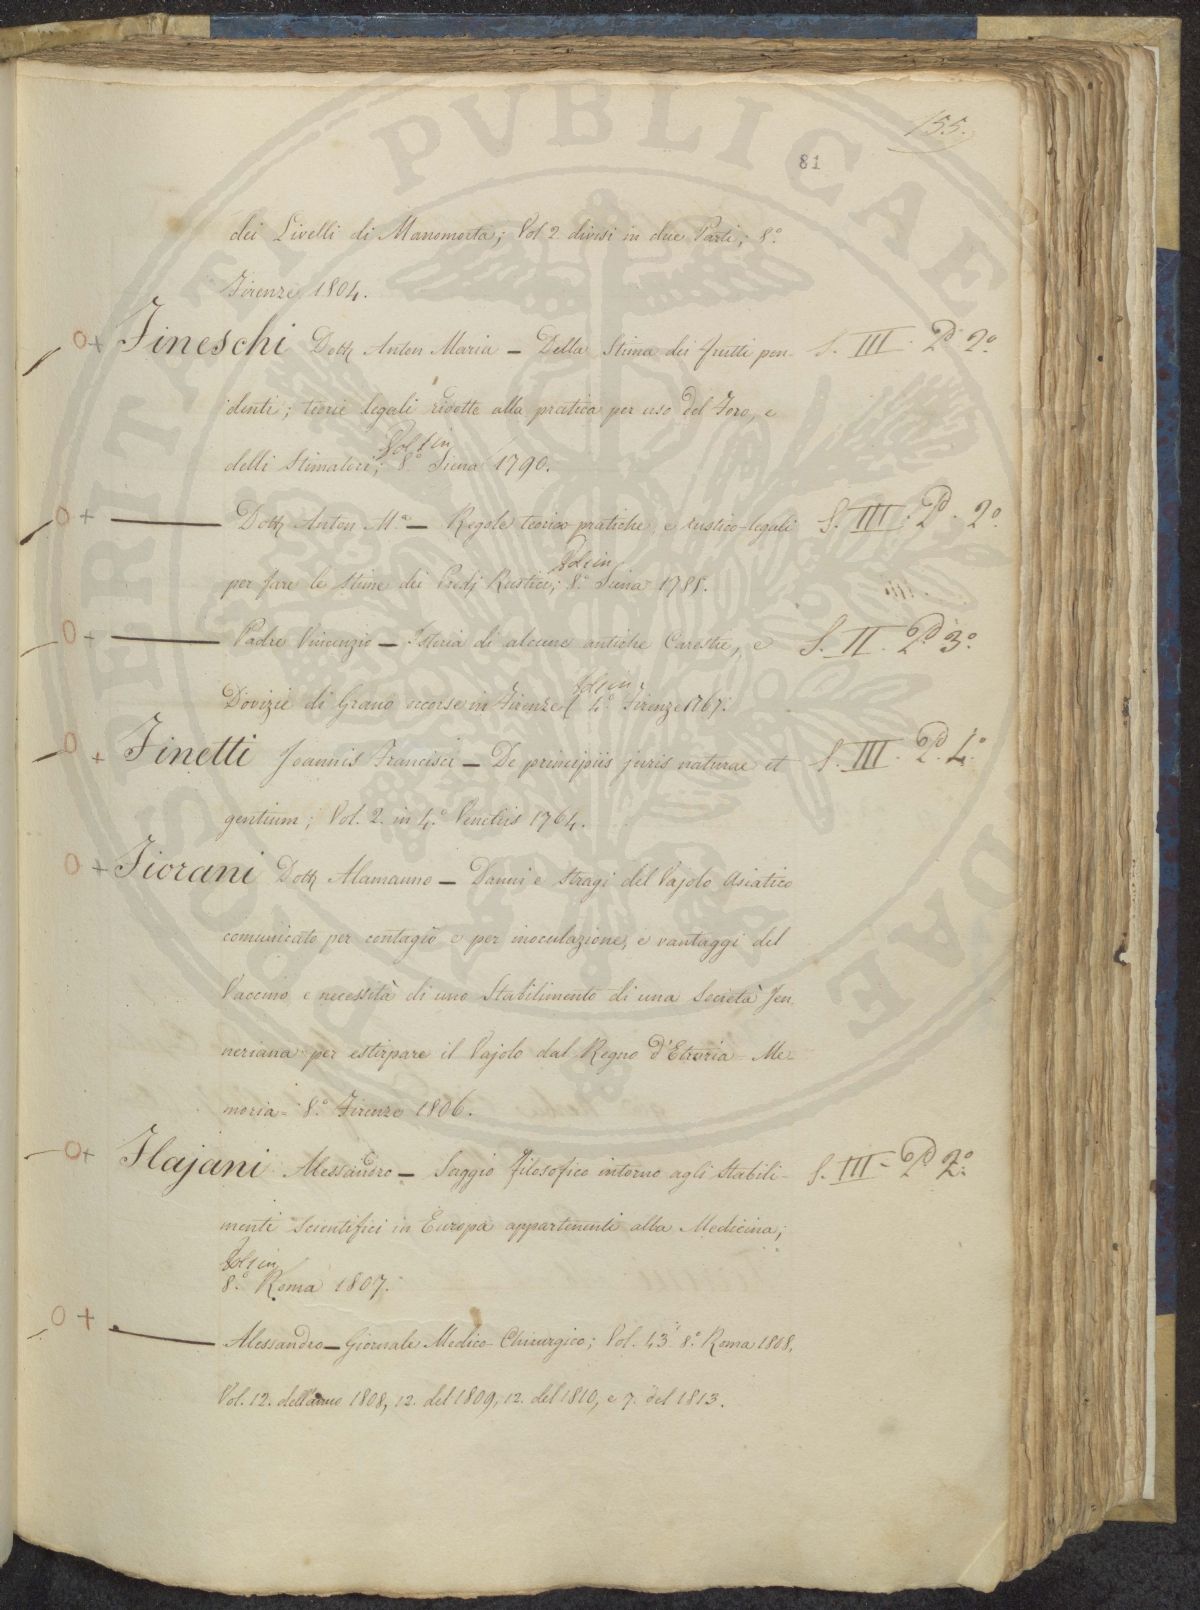 155.
81
dei Livelli di Manomorta; Vol 2 divisi in due Parti; 8.°
Firenze 1804.
O+ Fineschi Dott Anton Maria — Della Stima dei frutti pen- S. III. Pd 2.°
denti; teorie legali ridotte alla pratica per uso del Foro, e
delli Stimatori; Vol 1 in 8.° Siena 1790.
O+ —— Dott Anton M.a — Regole teorico pratiche, e rustico-legali S. III. Pd. 2.°
per fare le stime dei Predj Rustici; Vol 1 in 8.° Siena 1785.
O+ —— Padre Vincenzio — Istoria di alcune antiche Carestie, e S. II. Pd 3.°
Dovizie di Grano occorse in Firenze Vol 1 in 4.° Firenze 1767.
O+ Finetti Joannis Francisci — De principiis juris naturae et S. III. Pd. 4.°
gentium; Vol. 2. in 4.° Venetiis 1764.
O+ Fiorani Dott Alamanno — Danni e Stragi del Vajolo Asiatico
comunicato per contagio e per inoculazione, e vantaggi del
Vaccino e necessità di uno Stabilimento di una Società Jen
neriana per estirpare il Vajolo dal Regno d'Etruria - Me-
moria - 8.° Firenze 1806.
O+ Flajani Alessandro — Saggio filosofico intorno agli Stabili- S. III - Pd 2.°
menti Scientifici in Europa appartenenti alla Medicina;
Vol 1 in
8.° Roma 1807.
O+ —— Alessandro — Giornale Medico-Chirurgico; Vol. 43 8.° Roma 1808.
Vol. 12. dell'anno 1808, 12. del 1809, 12. del 1810, e 7. del 1813.
PUBLICAE